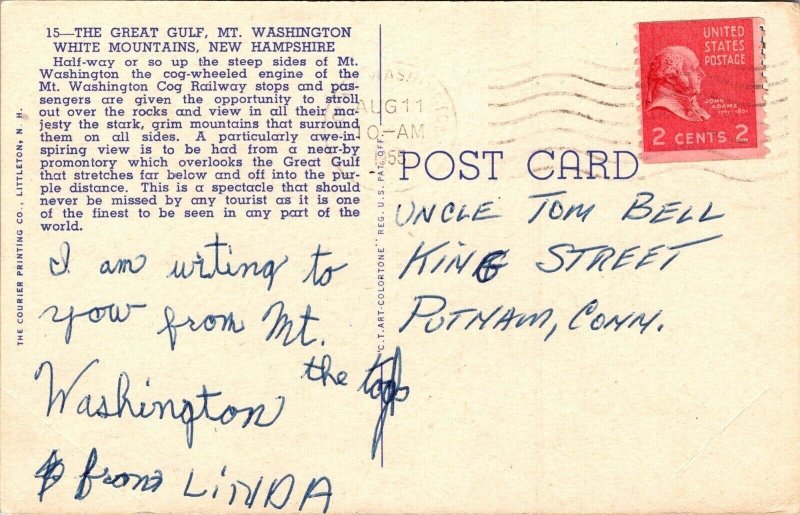 15—THE GREAT GULF, MT. WASHINGTON
WHITE MOUNTAINS, NEW HAMPSHIRE
Half-way or so up the steep sides of Mt.
Washington the cog-wheeled engine of the
Mt. Washington Cog Railway stops and pas-
sengers are given the opportunity to stroll
out over the rocks and view in all their ma-
jesty the stark, grim mountains that surround
them on all sides. A particularly awe-in-
spiring view is to be had from a near-by
promontory which overlooks the Great Gulf
that stretches far below and off into the pur-
ple distance. This is a spectacle that should
never be missed by any tourist as it is one
of the finest to be seen in any part of the
world.
THE COURIER PRINTING CO., LITTLETON, N. H.
I am writing to
you from Mt.
Washington the top
from LINDA
"C.T. ART-COLORTONE" REG. U.S. PAT. OFF.
AUG 11
10-AM
1955
UNITED
STATES
POSTAGE
JOHN
ADAMS
1797-1801
2 CENTS 2
POST CARD
UNCLE TOM BELL
KING STREET
PUTNAM, CONN.